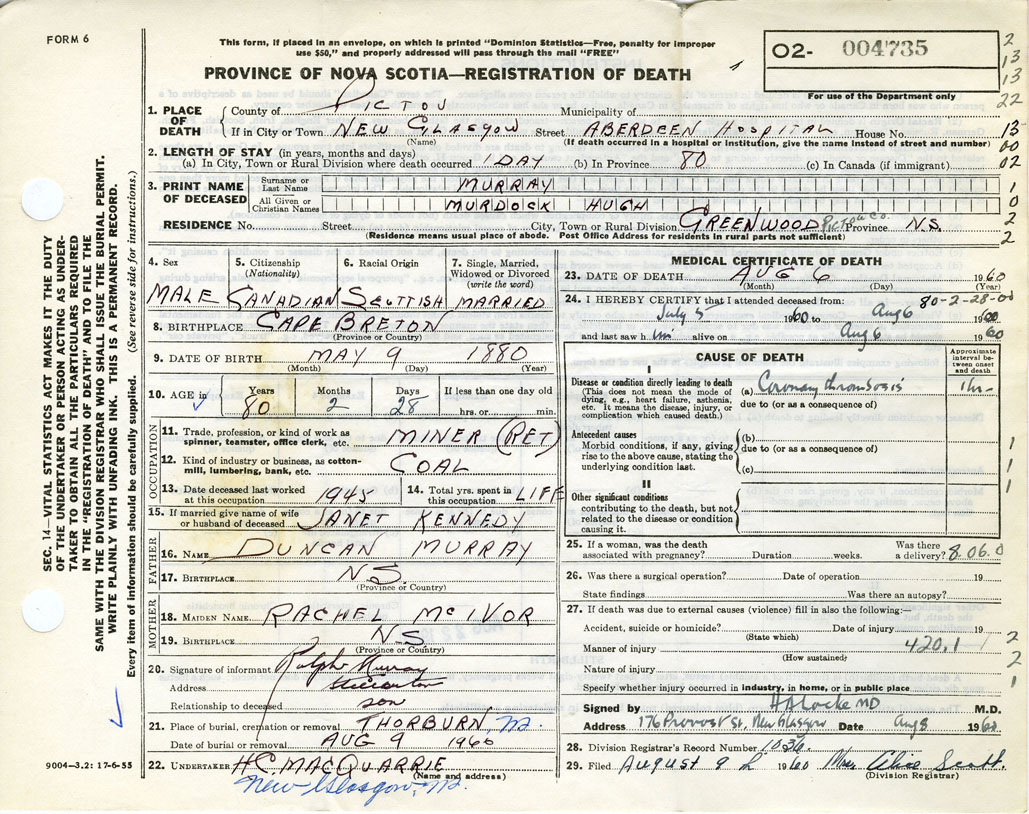 FORM 6
This form, if placed in an envelope, on which is printed "Dominion Statistics—Free, penalty for improper
use $50," and properly addressed will pass through the mail "FREE"
O2- 004735
For use of the Department only
PROVINCE OF NOVA SCOTIA—REGISTRATION OF DEATH
2
13
13
22
13
00
02
1
0
2
2
1. PLACE OF DEATH
County of PICTOU Municipality of
If in City or Town NEW GLASGOW Street ABERDEEN HOSPITAL House No.
(Name) (If death occurred in a hospital or institution, give the name instead of street and number)
2. LENGTH OF STAY (in years, months and days)
(a) In City, Town or Rural Division where death occurred 1 DAY (b) In Province 80 (c) In Canada (if immigrant)
3. PRINT NAME OF DECEASED
Surname or Last Name MURRAY
All Given or Christian Names MURDOCK HUGH
RESIDENCE No. Street City, Town or Rural Division GREENWOOD Pictou Co. Province N.S.
(Residence means usual place of abode. Post Office Address for residents in rural parts not sufficient)
4. Sex 5. Citizenship (Nationality) 6. Racial Origin 7. Single, Married, Widowed or Divorced (write the word)
MALE CANADIAN SCOTTISH MARRIED
8. BIRTHPLACE CAPE BRETON
(Province or Country)
9. DATE OF BIRTH MAY 9 1880
(Month) (Day) (Year)
10. AGE in Years Months Days If less than one day old
✓ 80 2 28 hrs. or min.
OCCUPATION
11. Trade, profession or kind of work as spinner, teamster, office clerk, etc. MINER (RET)
12. Kind of industry or business, as cotton-mill, lumbering, bank, etc. COAL
13. Date deceased last worked at this occupation 1945 14. Total yrs. spent in this occupation LIFE
15. If married give name of wife or husband of deceased JANET KENNEDY
FATHER
16. NAME DUNCAN MURRAY
17. BIRTHPLACE N S
(Province or Country)
MOTHER
18. MAIDEN NAME RACHEL MCIVOR
19. BIRTHPLACE N S
(Province or Country)
20. Signature of informant Ralph Murray
Address Stellarton
Relationship to deceased son
21. Place of burial, cremation or removal THORBURN, N.S.
Date of burial or removal AUG 9 1960
22. UNDERTAKER H.C. MACQUARRIE
(Name and address)
New Glasgow, N.S.
9004—3.2: 17-6-55
MEDICAL CERTIFICATE OF DEATH
23. DATE OF DEATH AUG 6 1960
(Month) (Day) (Year)
24. I HEREBY CERTIFY that I attended deceased from: 80-2-28-00
July 5 1960 to Aug 6 1960
and last saw him alive on Aug 6 1960
CAUSE OF DEATH
Approximate interval between onset and death
I
Disease or condition directly leading to death
(This does not mean the mode of dying, e.g., heart failure, asthenia, etc. It means the disease, injury, or complication which caused death.)
(a) Coronary thrombosis 1 hr-
due to (or as a consequence of)
Antecedent causes
Morbid conditions, if any, giving rise to the above cause, stating the underlying condition last.
(b)
due to (or as a consequence of)
(c)
1
1
1
II
Other significant conditions
contributing to the death, but not related to the disease or condition causing it.
25. If a woman, was the death associated with pregnancy? Duration weeks. Was there a delivery? 8060
26. Was there a surgical operation? Date of operation 19
State findings Was there an autopsy?
27. If death was due to external causes (violence) fill in also the following:—
Accident, suicide or homicide? Date of injury 19
(State which)
Manner of injury 420.1
(How sustained)
Nature of injury
Specify whether injury occurred in industry, in home, or in public place
2
2
1
Signed by H A Locke MD M.D.
Address 176 Provost St, New Glasgow Date Aug 8 1960
28. Division Registrar's Record Number 1036
29. Filed AUGUST 9 1960 Alice Scott.
(Division Registrar)
SEC. 14—VITAL STATISTICS ACT MAKES IT THE DUTY
OF THE UNDERTAKER OR PERSON ACTING AS UNDER-
TAKER TO OBTAIN ALL THE PARTICULARS REQUIRED
IN THE "REGISTRATION OF DEATH" AND TO FILE THE
SAME WITH THE DIVISION REGISTRAR WHO SHALL ISSUE THE BURIAL PERMIT.
WRITE PLAINLY WITH UNFADING INK. THIS IS A PERMANENT RECORD.
Every item of information should be carefully supplied. (See reverse side for instructions.)